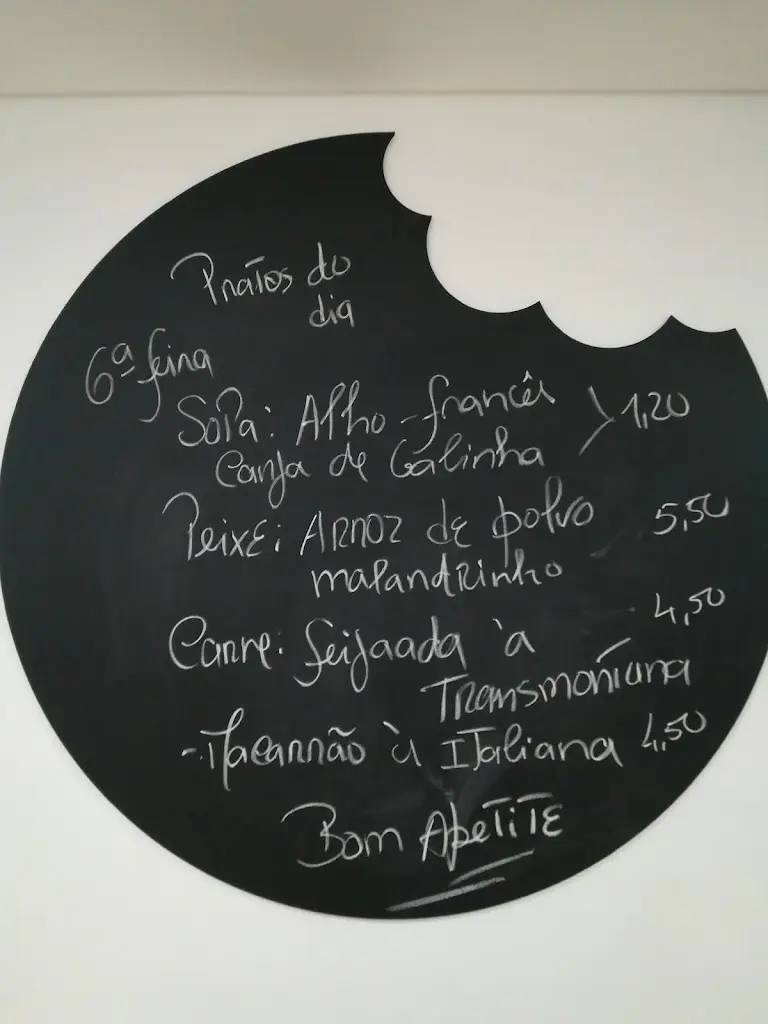 Pratos do
dia
6ª feira
Sopa: Alho-francês
Canja de Galinha
1,20
Peixe: Arroz de polvo
malandrinho
5,50
Carne: feijoada à
Transmontana
4,50
-Macarrão à Italiana 4,50
Bom Apetite